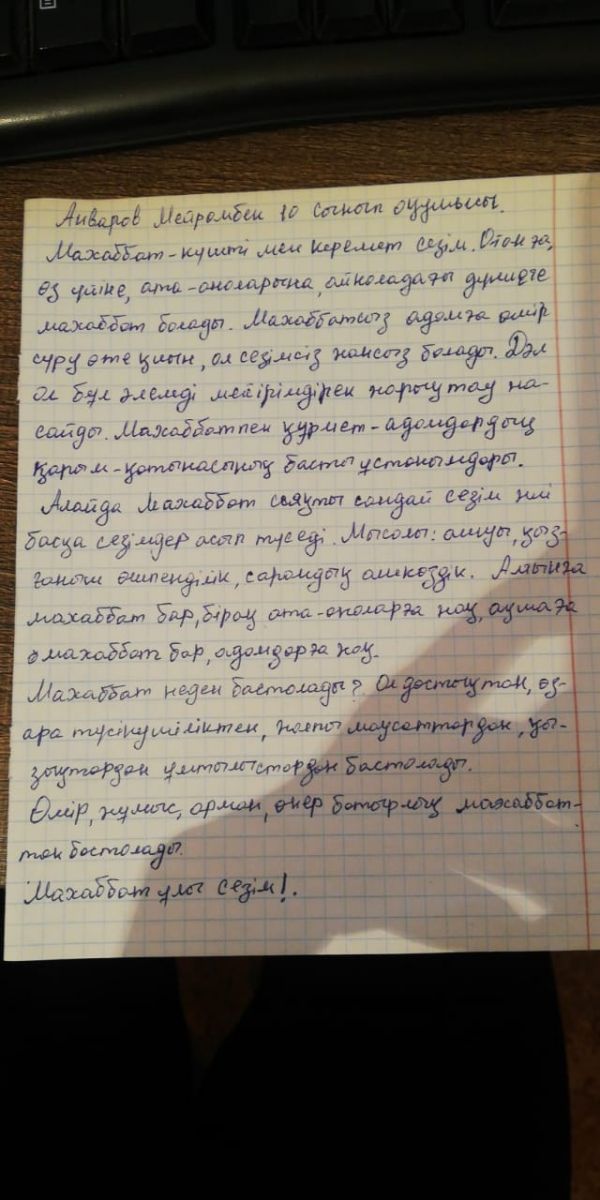 Анваров Мейрамбек 10 сынып оқушысы.
Махаббат-күшті мен керемет сезім. Отанға,
өз үйіңе, ата-аналарыңа, айналадағы дүниеге
махаббат болады. Махаббатсыз адамға өмір
сүру өте қиын, ол сезімсіз жансыз болады. Дәл
ол бұл әлемді мейірімдірек жарықтау жа-
сайды. Махаббатпен құрмет-адамдардың
қарым-қатынасының басты ұстанымдары.
Алайда Махаббат сияқты сандай сезім
басқа сезімдер асып түседі. Мысалы: ашу, қыз-
ғаныш өшпенділік, сараңдық ашкөздік. Алтынға
махаббат бар, бірақ ата-аналарға жоқ, ақшаға
махаббат бар, адамдарға жоқ.
Махаббат неден басталады? Ол достықтан, өз-
ара түсінушіліктен, жалпы мақсаттардан, қы-
зықтардан ұмтылыстардан басталады.
Өмір, жұмыс, арман, өнер батырлық махаббат-
тан басталады.
Махаббат ұлы сезім!.